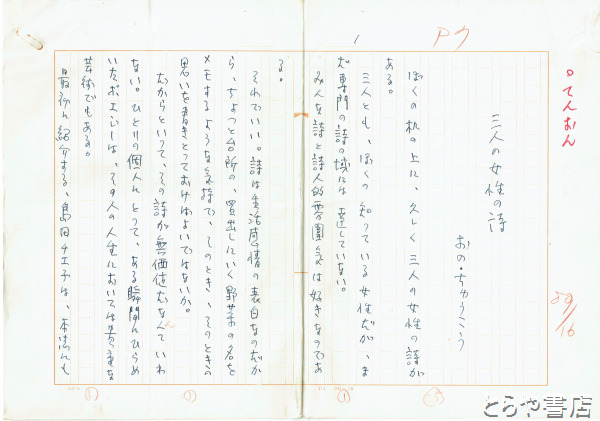 てんおん
三人の女性の詩
おの・ちゅうこう
ぼくの机の上に、久しく三人の女性の詩が
ある。
三人とも、ぼくの知っている女性だが、ま
だ専門の詩の域には達していない。
みんな詩と詩人的雰囲気は好きなのであ
る。
それでいい。詩は生活感情の表白なのだか
ら、ちょっと台所の、買出しにいく野菜の名を
メモするような気持で、そのとき、そのときの
思いを書きとっておけばよいではないか。
だからといって、その詩が無価値だなんていわ
ない。ひとりの個人にとって、ある瞬間にひらめ
いたポエジーは、その人の人生においては貴重な
芸術でもある。
最初に紹介する、島田チエ子は、本誌にも
1
59/16
とらや書店